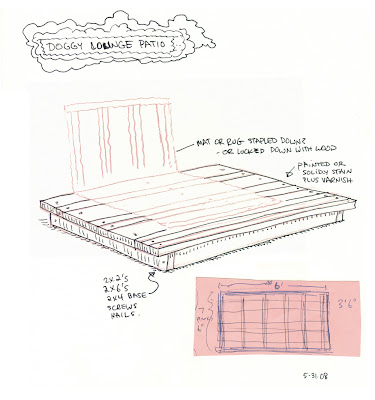 DOGGY LOUNGE PATIO
MAT OR RUG STAPLED DOWN?
- OR LOCKED DOWN WITH WOOD
PAINTED OR
SOLIDY STAIN
PLUS VARNISH
2x2's
2x6's
2x4 BASE
SCREWS
NAILS.
6'
3'6"
6"
5-31.08